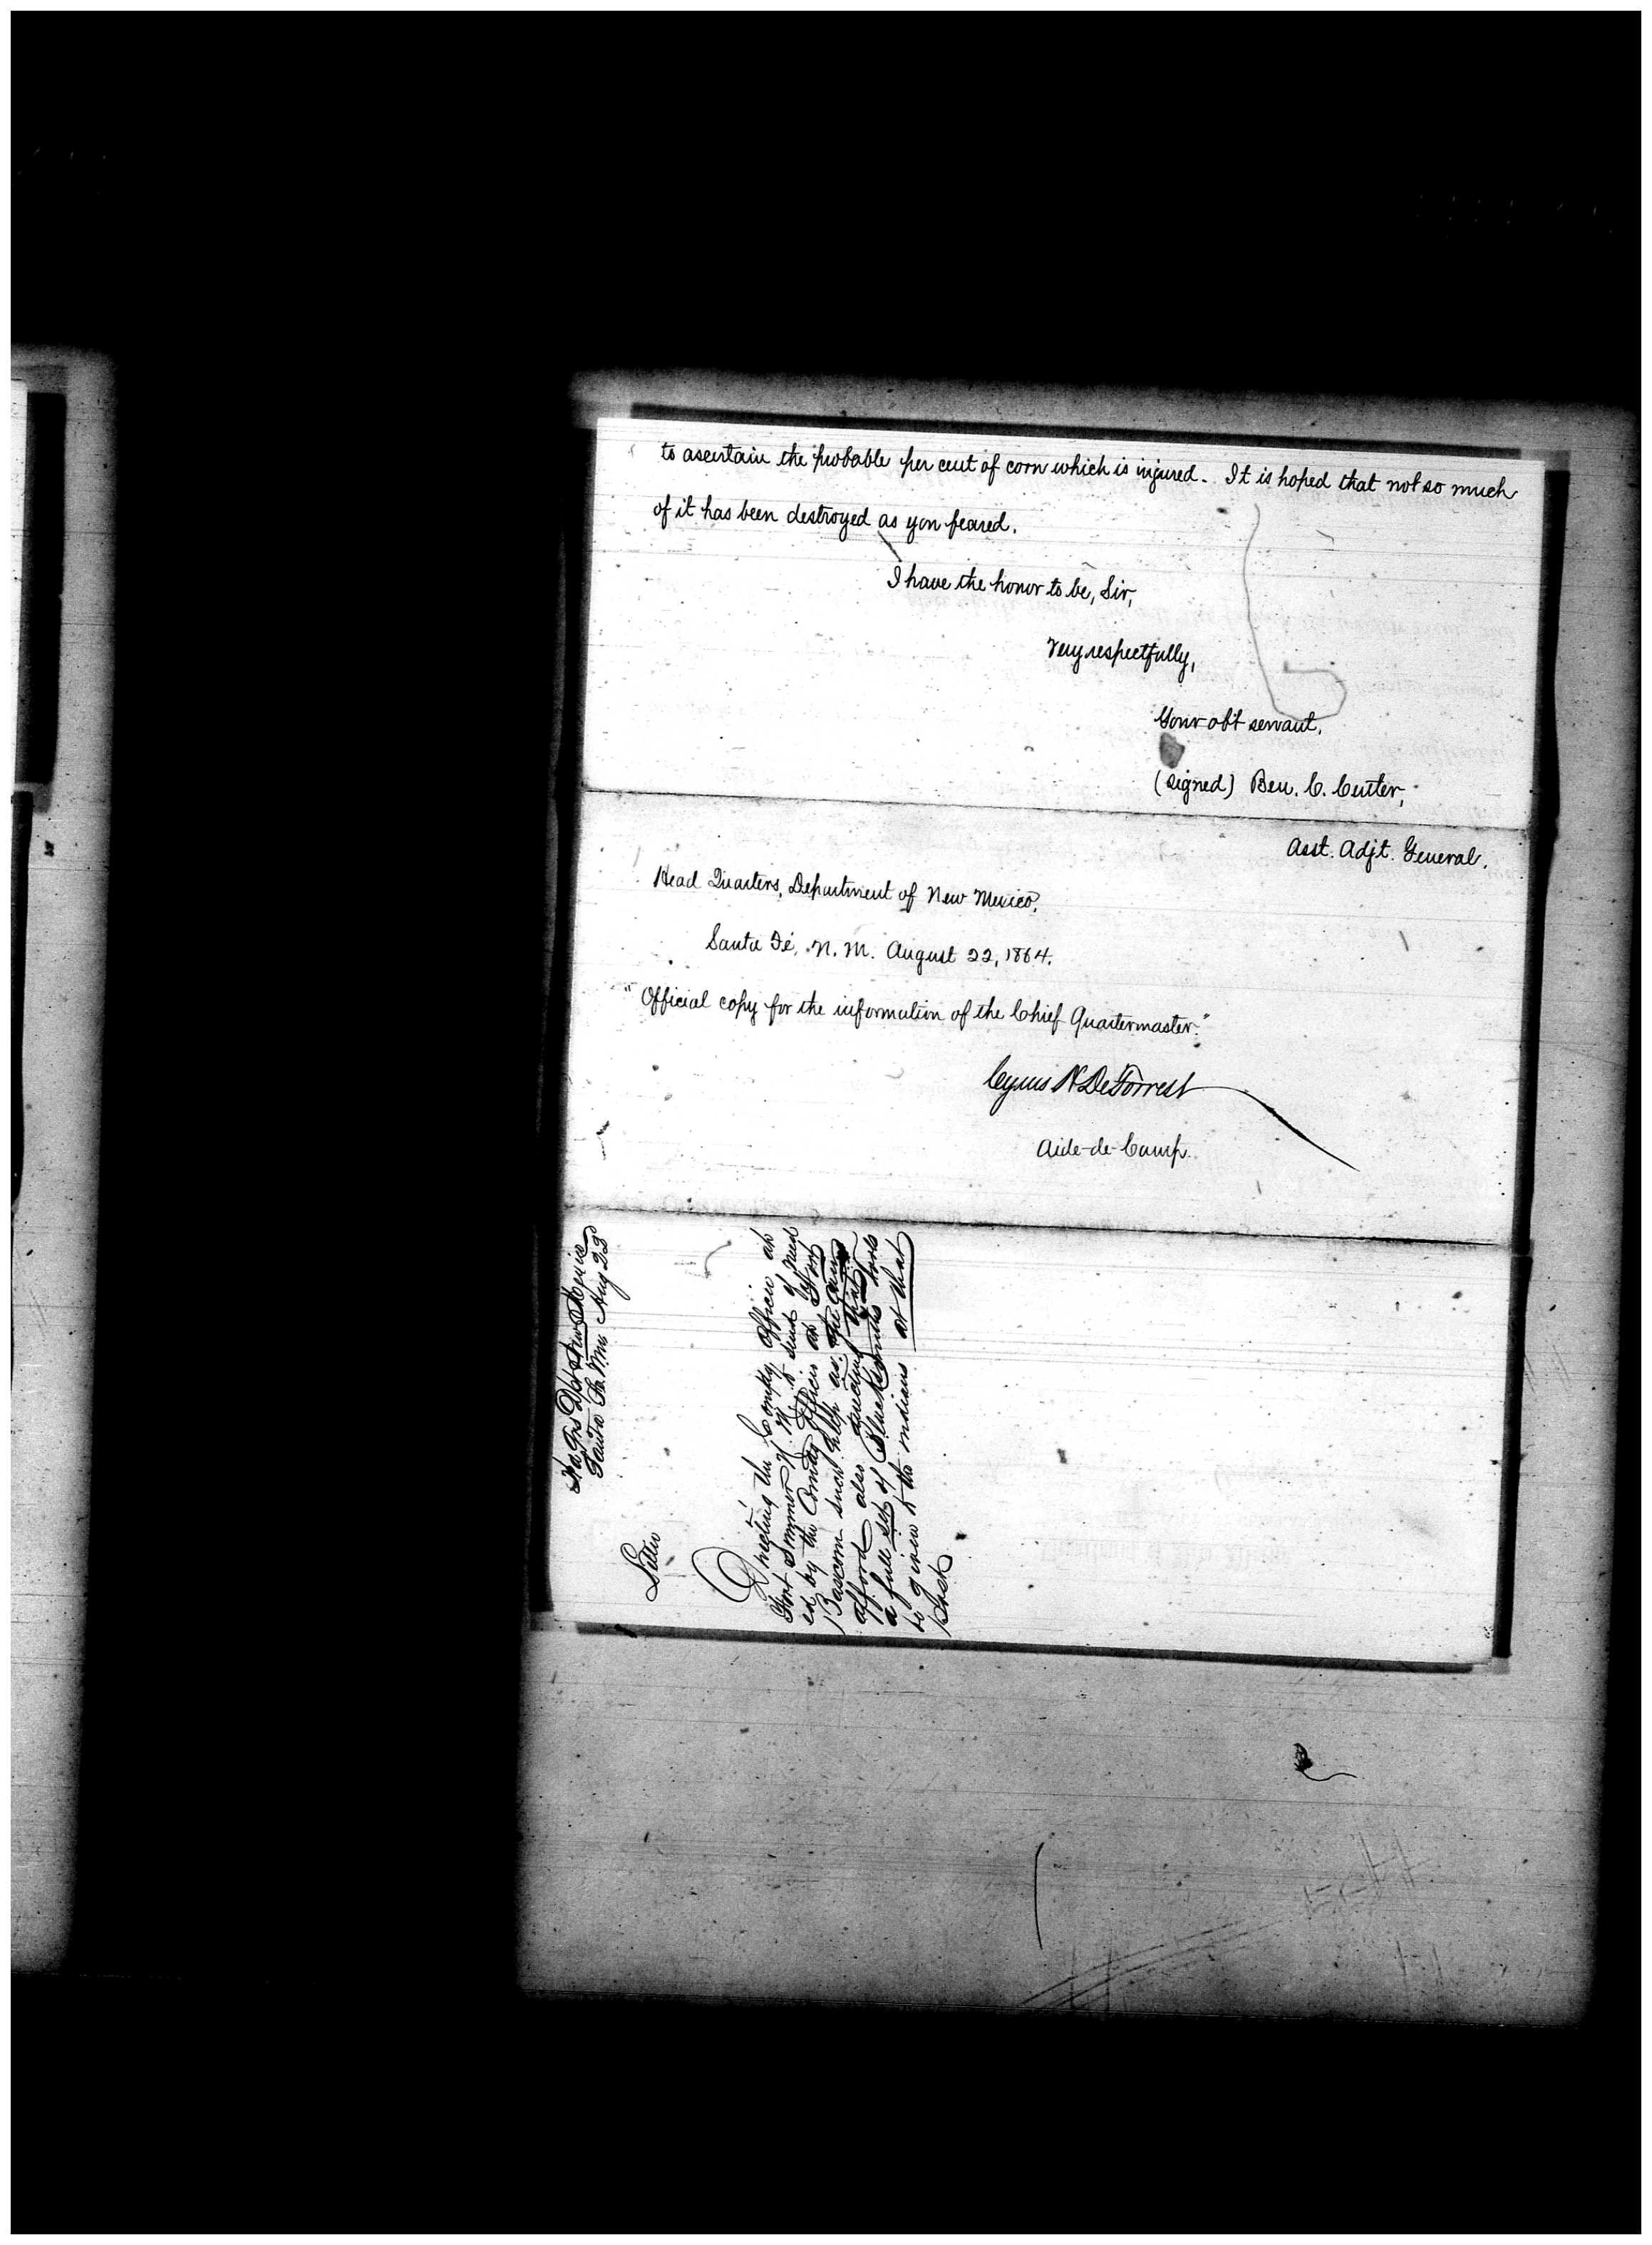 to ascertain the probable per cent of corn which is injured. It is hoped that not so much
of it has been destroyed as you feared.
I have the honor to be, Sir,
Very respectfully,
Your obt servant,
(signed) Ben. C. Cutler,
Asst. Adjt. General.
Head Quarters, Department of New Mexico,
Santa Fé, N. M. August 22, 1864.
"Official copy for the information of the Chief Quartermaster."
Cyrus H DeForrest
Aide-de-Camp.
Hd Qrs Dept New Mexico
Santa Fe NM Aug 22d
Letter
Directing the Comdg Officer at
Fort Sumner N. M. to send if need
ed by the Comdg Officer at Fort
Bascom such help as he can
afford also that
a full set of Blacksmiths tools
be given to the indians at that
Post